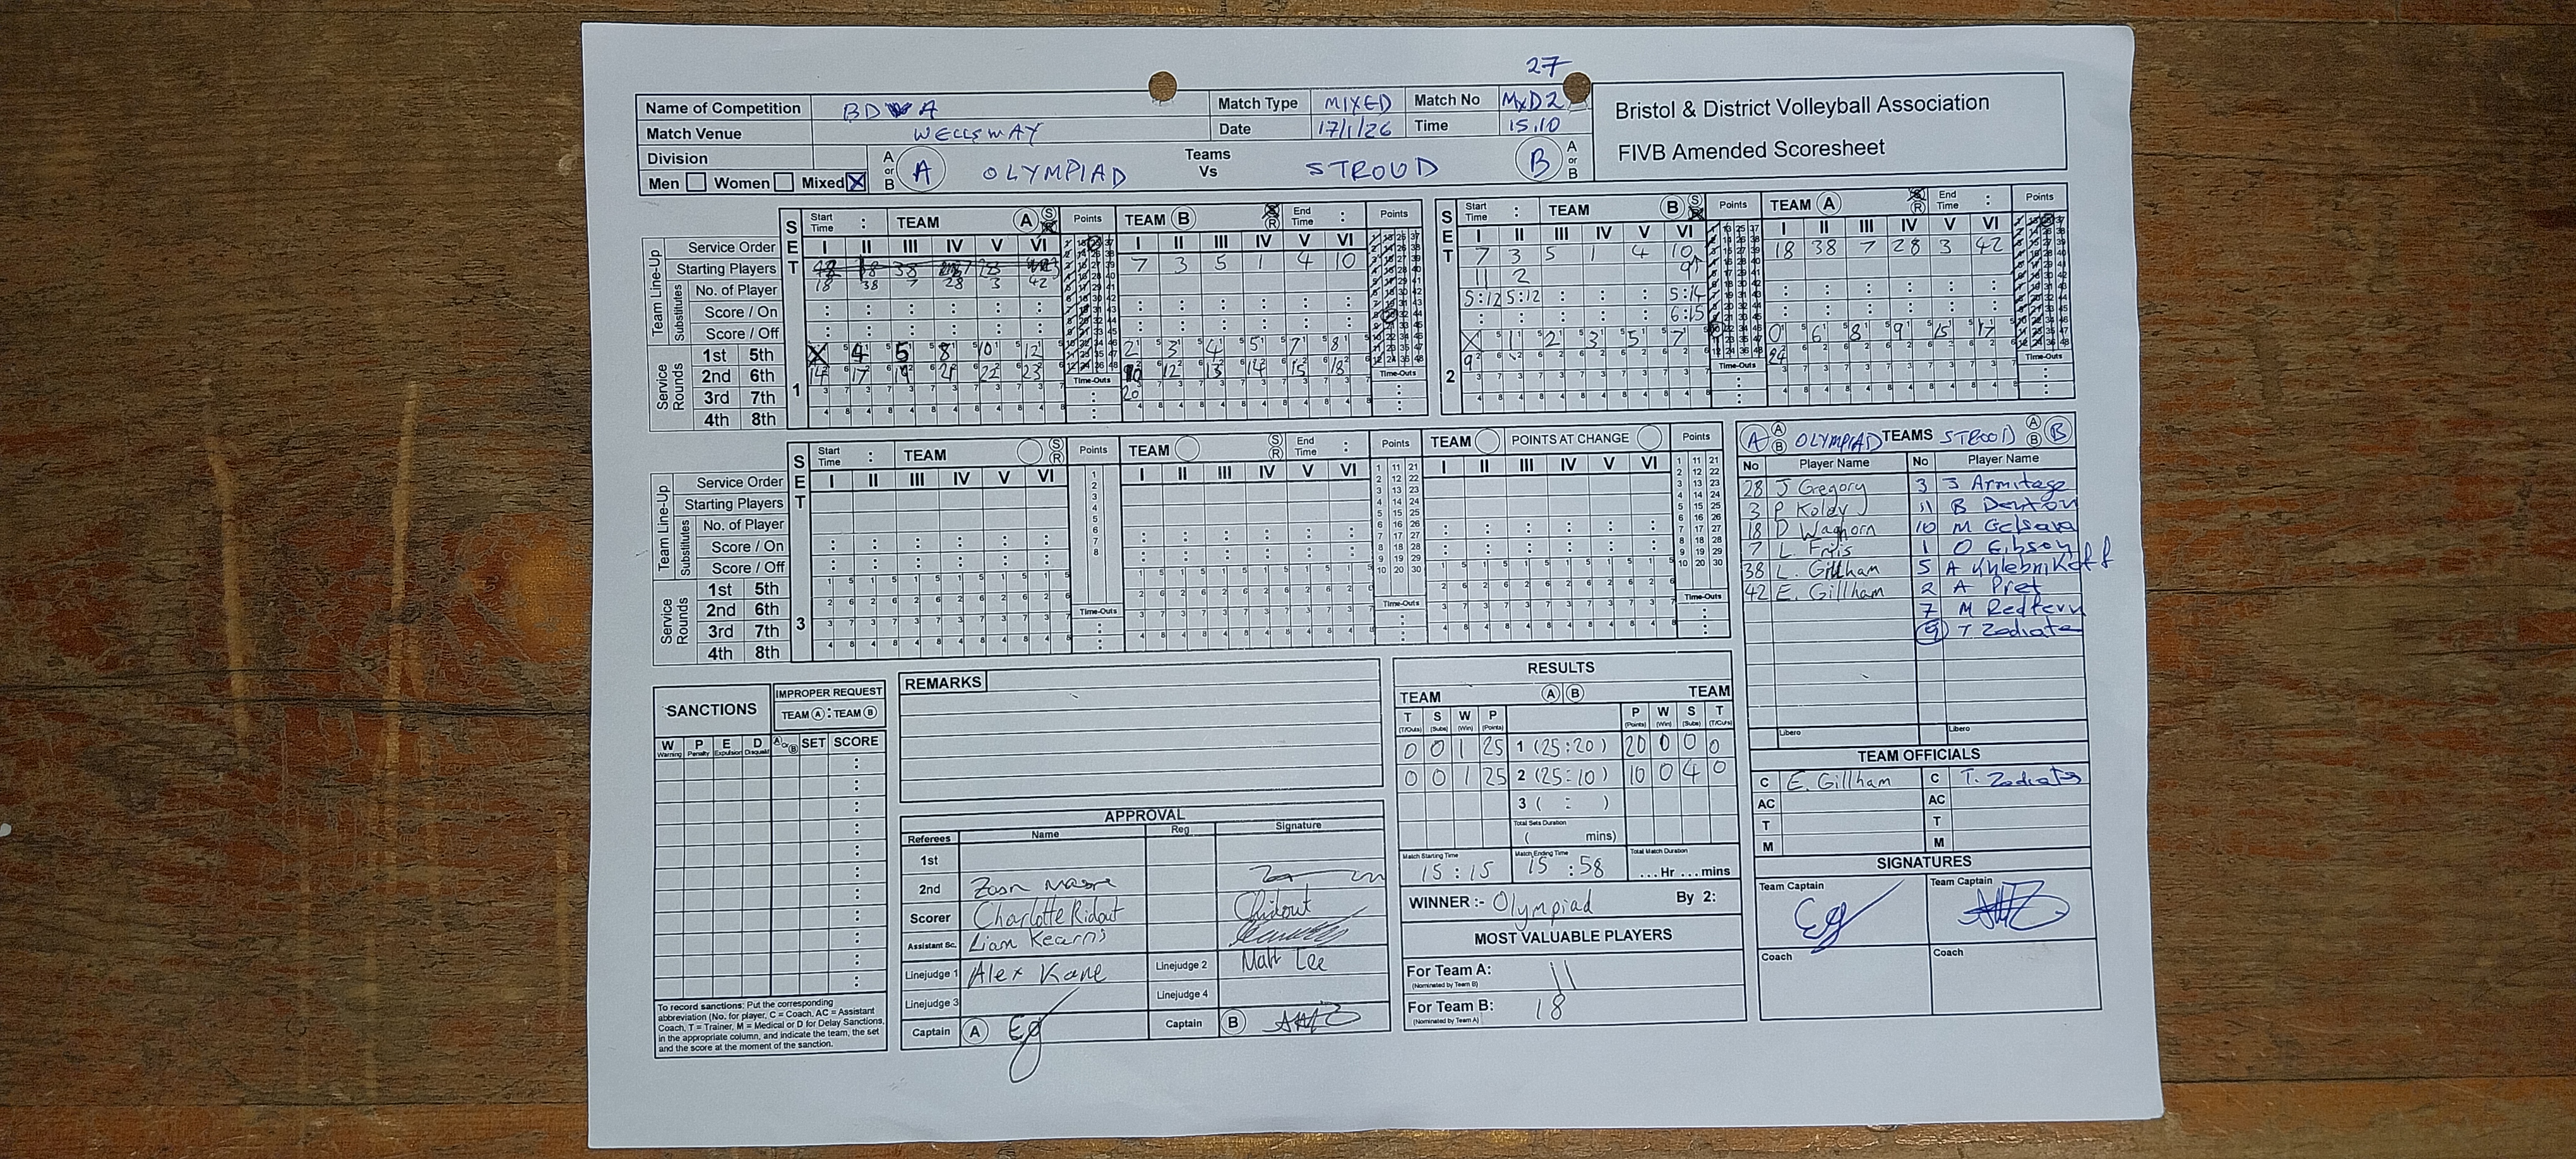 27
Name of Competition BDVA Match Type MIXED Match No MXD2
Match Venue WELLSWAY Date 17/1/26 Time 15.10
Bristol & District Volleyball Association
FIVB Amended Scoresheet
Division
Men Women Mixed X
A or B A OLYMPIAD Teams Vs STROUD B A or B
SET 1 Start Time : TEAM A S R Points TEAM B S R End Time : Points
Service Order I II III IV V VI I II III IV V VI
Team Line-Up Starting Players 7 3 5 1 4 10
Substitutes No. of Player 18 38 7 28 3 42
Score / On
Score / Off
Service Rounds
1st 5th X 4 5 8 10 12 2 3 4 5 7 8
2nd 6th 14 17 19 21 22 23 10 12 13 14 15 18
3rd 7th 20
4th 8th
Time-Outs Time-Outs
SET 2 Start Time : TEAM B S R Points TEAM A S R End Time : Points
I II III IV V VI I II III IV V VI
7 3 5 1 4 10 18 38 7 28 3 42
11 2 9
5:12 5:12 : : : 5:14
: : : : : 6:15
X 1 2 3 5 7 0 6 8 9 15 17
9 24
Time-Outs Time-Outs
SET 3 Start Time : TEAM S R Points TEAM S R End Time : Points TEAM POINTS AT CHANGE Points
Service Order I II III IV V VI I II III IV V VI I II III IV V VI
Team Line-Up Starting Players
Substitutes No. of Player
Score / On
Score / Off
Service Rounds
1st 5th
2nd 6th
3rd 7th
4th 8th
Time-Outs Time-Outs Time-Outs
A A B OLYMPIAD TEAMS STROUD A B B
No Player Name No Player Name
28 J Gregory 3 J Armitage
3 P Koldy 11 B Denton
18 D Waghorn 10 M
7 L. 1 O Gibson
38 L. Gillham 5 A
42 E. Gillham 2 A Pret
7 M Redfern
9 T Zodiate
Libero Libero
TEAM OFFICIALS
C E. Gillham C T.
AC AC
T T
M M
SIGNATURES
Team Captain Team Captain
Coach Coach
SANCTIONS
IMPROPER REQUEST
TEAM A : TEAM B
W Warning P Penalty E Expulsion D Disqualif A or B SET SCORE
To record sanctions: Put the corresponding
abbreviation (No. for player, C = Coach, AC = Assistant
Coach, T = Trainer, M = Medical or D for Delay Sanctions,
in the appropriate column, and indicate the team, the set
and the score at the moment of the sanction.
REMARKS
APPROVAL
Referees Name Reg Signature
1st
2nd
Scorer Charlotte Ridout
Assistant Sc. Liam Kearns
Linejudge 1 Alex Kane Linejudge 2 Matt Lee
Linejudge 3 Linejudge 4
Captain A Eg Captain B
RESULTS
TEAM A B TEAM
T (T/Outs) S (Subs) W (Win) P (Points) P (Points) W (Win) S (Subs) T (T/Outs)
0 0 1 25 1 (25:20) 20 0 0 0
0 0 1 25 2 (25:10) 10 0 4 0
3 ( : )
Total Sets Duration
( mins)
Match Starting Time 15:15 Match Ending Time 15:58 Total Match Duration ...Hr ...mins
WINNER :- Olympiad By 2:
MOST VALUABLE PLAYERS
For Team A: 11
(Nominated by Team B)
For Team B: 18
(Nominated by Team A)